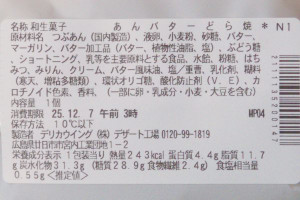 名称 和生菓子 あんバターどら焼き N1
原材料名 つぶあん(国内製造)、液卵、小麦粉、砂糖、バター、
マーガリン、バター加工品(バター、植物性油脂、塩)、ぶどう糖
、ショートニング、乳等を主要原料とする食品、水飴、粉糖、はち
みつ、みりん、クリーム、バター風味油、塩/重曹、乳化剤、糊料
(寒天、増粘多糖類)、環状オリゴ糖、酸化防止剤(V.E)、カ
ロチノイド色素、香料、(一部に卵・乳成分・小麦・大豆を含む)
内容量 1個
消費期限 25.12.7 午前3時 MP04
保存方法 10℃以下
製造者 デリカウイング(株) デザート工場 0120-99-1819
広島県廿日市市宮内工業団地1-2
栄養成分表示 1包装当り 熱量243kcal 蛋白質4.4g 脂質11.7
g 炭水化物31.3g (糖質28.9g 食物繊維2.4g) 食塩相当量
0.55g <推定値>